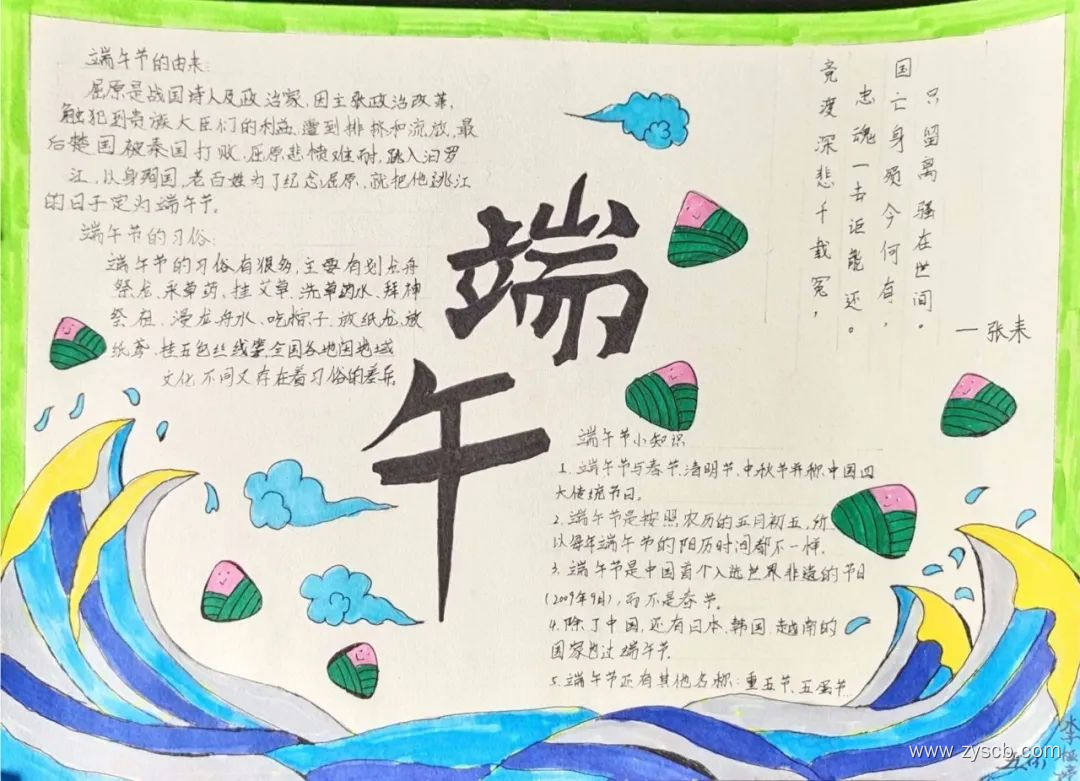 端午节的由来:
屈原是战国诗人及政治家,因主张政治改革,
触犯到贵族大臣们的利益,遭到排挤和流放,最
后楚国被秦国打败,屈原悲愤难耐,跳入汨罗
江,以身殉国,老百姓为了纪念屈原,就把他跳江
的日子定为端午节。
端午节的习俗:
端午节的习俗有很多,主要有划龙舟
祭龙、采草药、挂艾草、洗草药水、拜神
祭祖、浸龙舟水、吃粽子、放纸龙、放
纸鸢、拴五色丝线等,全国各地因地域
文化不同又存在着习俗的差异
端
午
竞渡深悲千载冤,
忠魂一去讵能还。
国亡身殒今何有,
只留离骚在世间。
—张耒
端午节小知识
1、端午节与春节、清明节、中秋节并称中国四
大传统节日。
2、端午节是按照农历的五月初五,所
以每年端午节的阳历时间都不一样.
3、端午节是中国首个入选世界非遗的节日
(2009年9月),而不是春节。
4、除了中国,还有日本、韩国、越南的
国家也过端午节.
5、端午节还有其他名称:重五节、五蛋节
www.zyscb.com